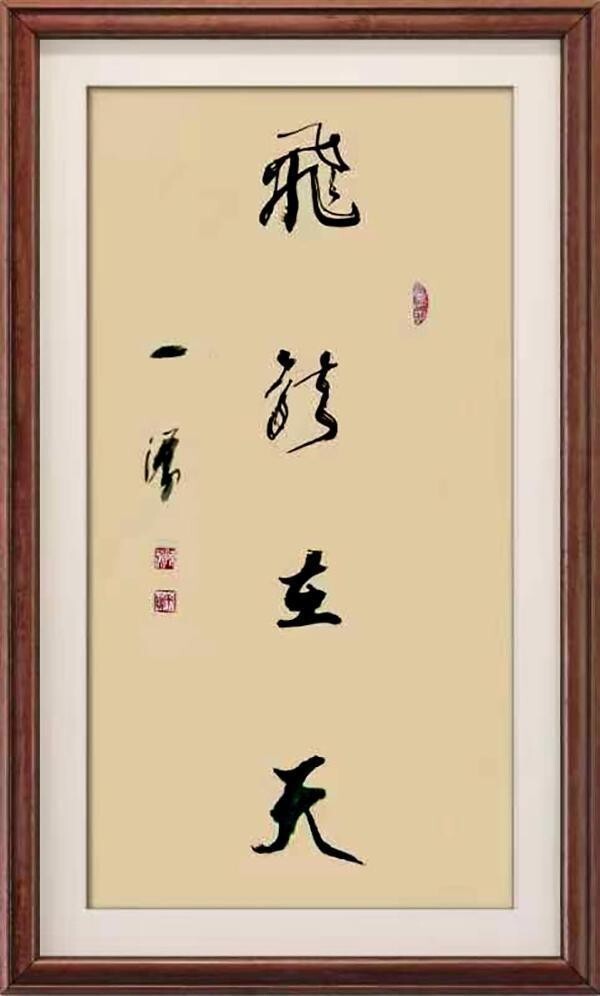 飛龍在天
一漢